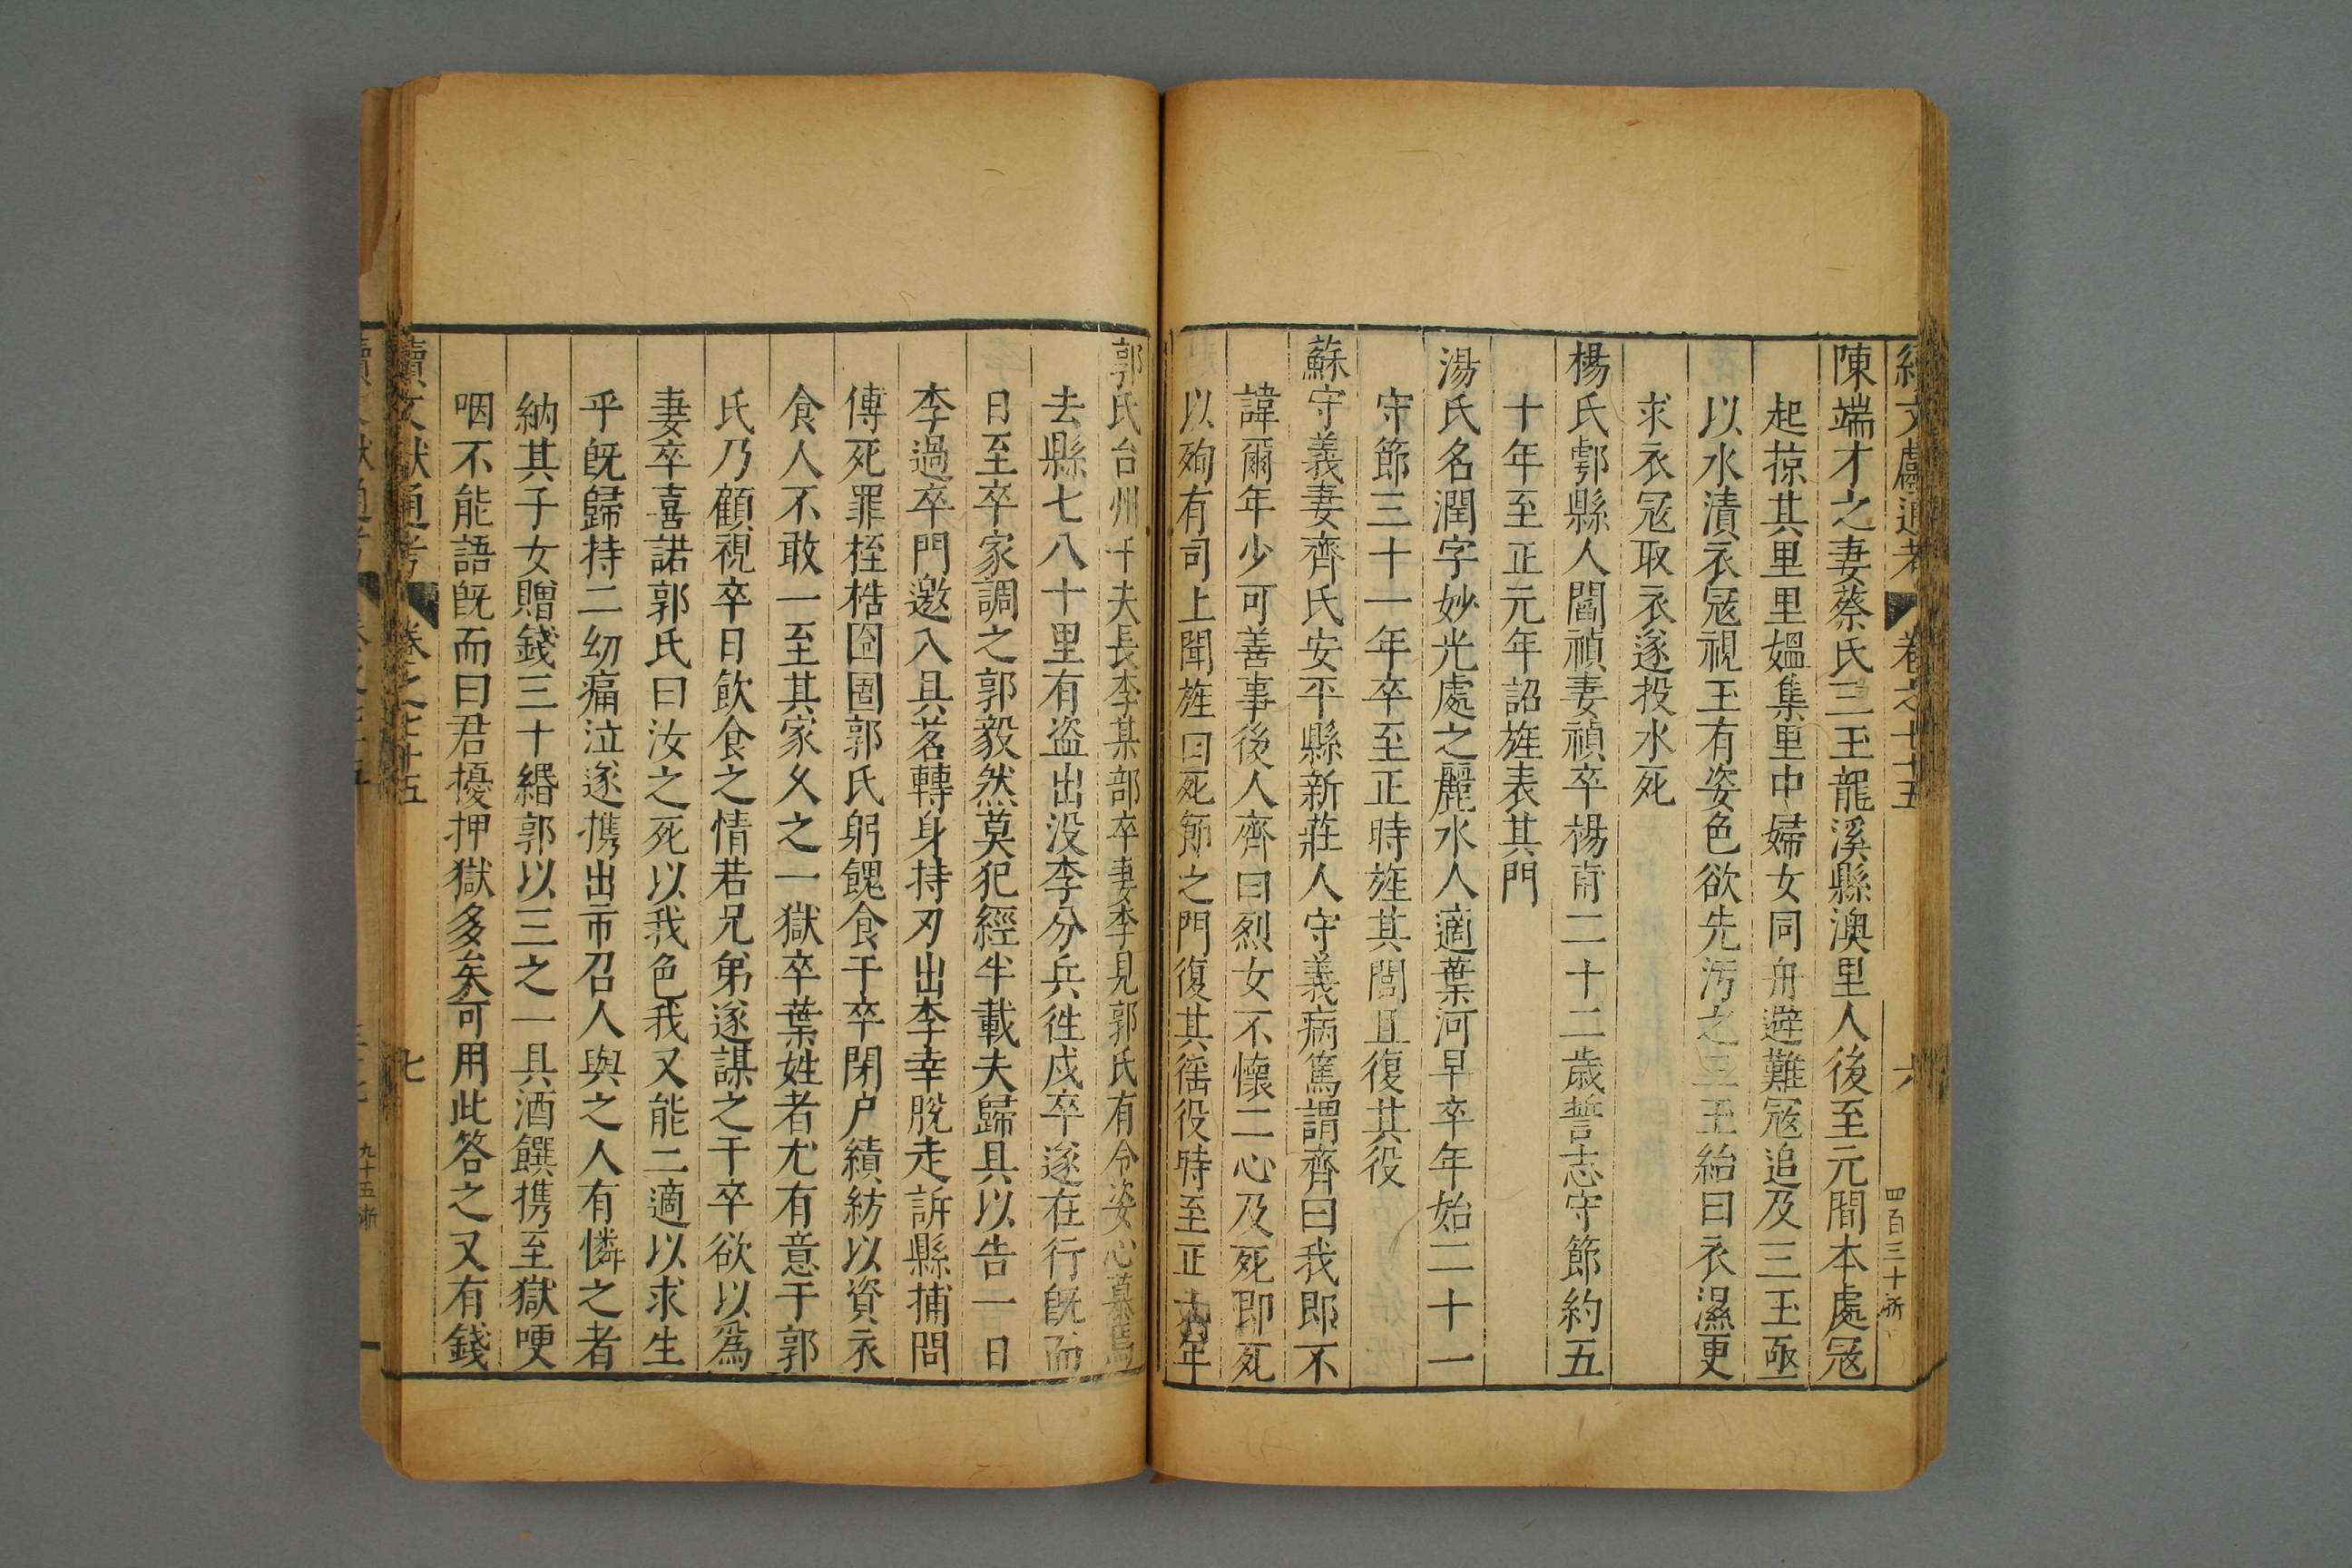 續文獻通考 卷之七十五 六 四百三十 浙
陳端才之妻蔡氏三玉龍溪縣澳里人後至元間本處冦
起掠其里里媼集里中婦女同舟避難冦追及三玉亟
以水漬衣冦視玉有姿色欲先汚之三玉紿曰衣濕更
求衣冦取衣遂投水死
楊氏鄠縣人閻禎妻禎卒楊甫二十二歳誓志守節約五
十年至正元年詔旌表其門
湯氏名潤字妙光處之麗水人適葉河早卒年始二十一
守節三十一年卒至正時旌其閭且復其役
蘇守義妻齊氏安平縣新莊人守義病篤謂齊曰我即不
諱爾年少可善事後人齊曰烈女不懷二心及死即死
以殉有司上聞旌曰死節之門復其徭役時至正年
郭氏台州千夫長李某部卒妻李見郭氏有令姿心慕焉
去縣七八十里有盗出没李分兵徃戍卒遂在行旣而
日至卒家調之郭毅然莫犯經半載夫歸具以告一日
李過卒門邀入具茗轉身持刃出李幸脫走訴縣捕問
傅死罪桎梏囹圄郭氏躬餽食于卒閉户績紡以資衣
食人不敢一至其家乆之一獄卒葉姓者尤有意于郭
氏乃顧視卒日飲食之情若兄弟遂謀之干卒欲以爲
妻卒喜諾郭氏曰汝之死以我色我又能二適以求生
乎旣歸持二幼痛泣遂携出市召人與之人有憐之者
納其子女贈錢三十緡郭以三之一具酒饌携至獄哽
咽不能語旣而曰君擾押獄多矣可用此答之又有錢
續文獻通考 卷之七十五 七
九十五 浙